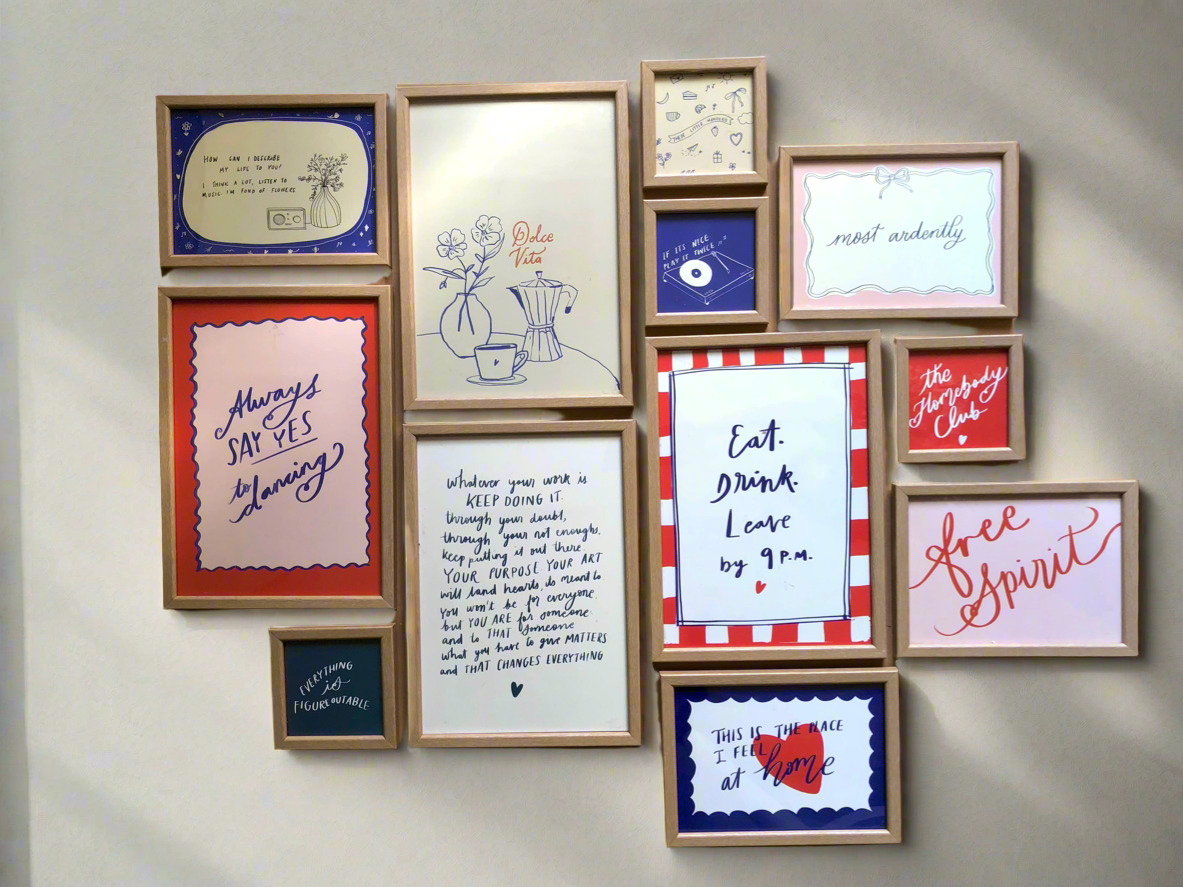 HOW CAN I DESCRIBE
MY LIFE TO YOU?
I THINK A LOT, LISTEN TO
MUSIC. I'M FOND OF FLOWERS
Always
SAY YES
to dancing
EVERYTHING
is
FIGUREOUTABLE
Dolce
Vita
Whatever your work is
KEEP DOING IT.
through your doubt,
through your not enoughs,
keep putting it out there.
YOUR PURPOSE YOUR ART
will land hearts, do meant to.
You won't be for everyone.
but YOU ARE for someone.
and to THAT someone
what you have to give MATTERS
and THAT CHANGES EVERYTHING
LITTLE
IF ITS NICE
PLAY IT TWICE
most ardently
Eat.
Drink.
Leave
by 9 P.M.
the
Homebody
Club
free
Spirit
THIS IS THE PLACE
I FEEL
at home